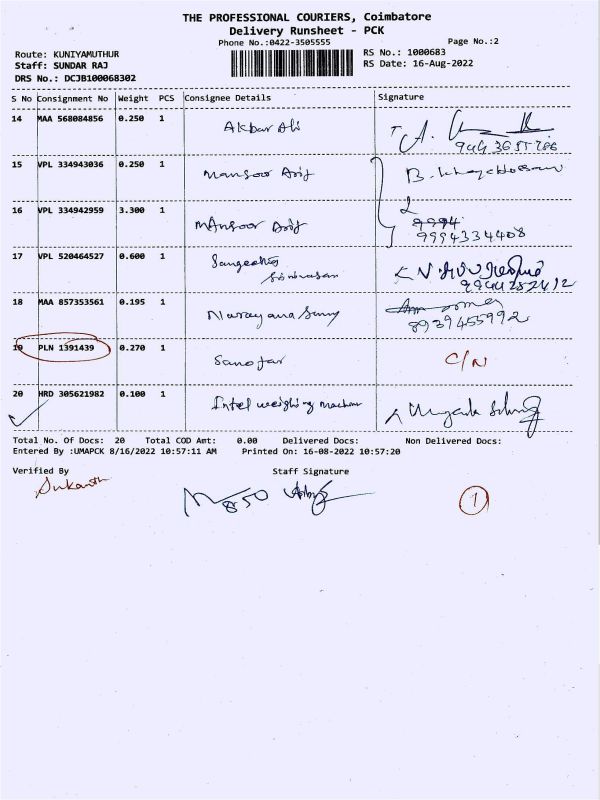 THE PROFESSIONAL COURIERS, Coimbatore
Delivery Runsheet - PCK
Phone No.:0422-3505555 Page No.:2
Route: KUNIYAMUTHUR RS No.: 1000683
Staff: SUNDAR RAJ RS Date: 16-Aug-2022
DRS No.: DCJB100068302
S No Consignment No Weight PCS Consignee Details Signature
14 MAA 568084856 0.250 1 Akbar Ali
15 VPL 334943036 0.250 1 Mansoor
16 VPL 334942959 3.300 1 Mansoor 9994
9994334408
17 VPL 520464527 0.600 1
18 MAA 857353561 0.195 1 Narayana 8939455992
19 PLN 1391439 0.270 1 Sanofar C/N
20 HRD 305621982 0.100 1 Intel weighing machine
Total No. Of Docs: 20 Total COD Amt: 0.00 Delivered Docs: Non Delivered Docs:
Entered By :UMAPCK 8/16/2022 10:57:11 AM Printed On: 16-08-2022 10:57:20
Verified By Staff Signature
Sukanth
1